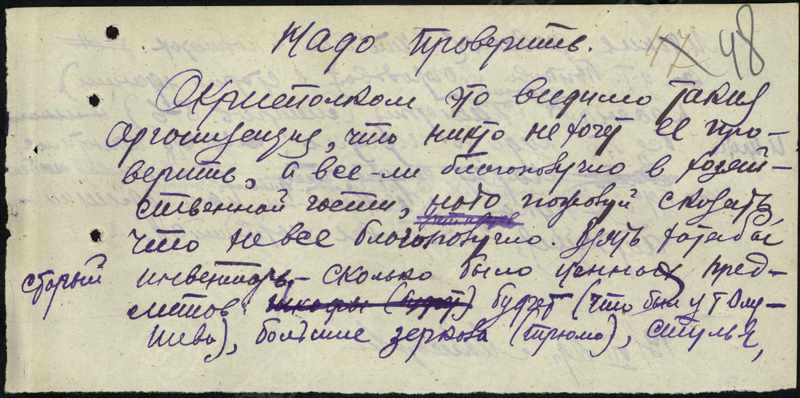 Надо проверить.
47 48
Окрисполком это видимо такая
организация, что никто не хочет ее про-
верить, а все-ли благополучно в хозяй-
ственной части, надо пожалуй сказать
что не все благополучно. Взять хотя бы
старый инвентарь, - сколько было ценных пред-
метов: шкафы (буфет) буфет (что был у т
), большие зеркала (трюмо), стулья,